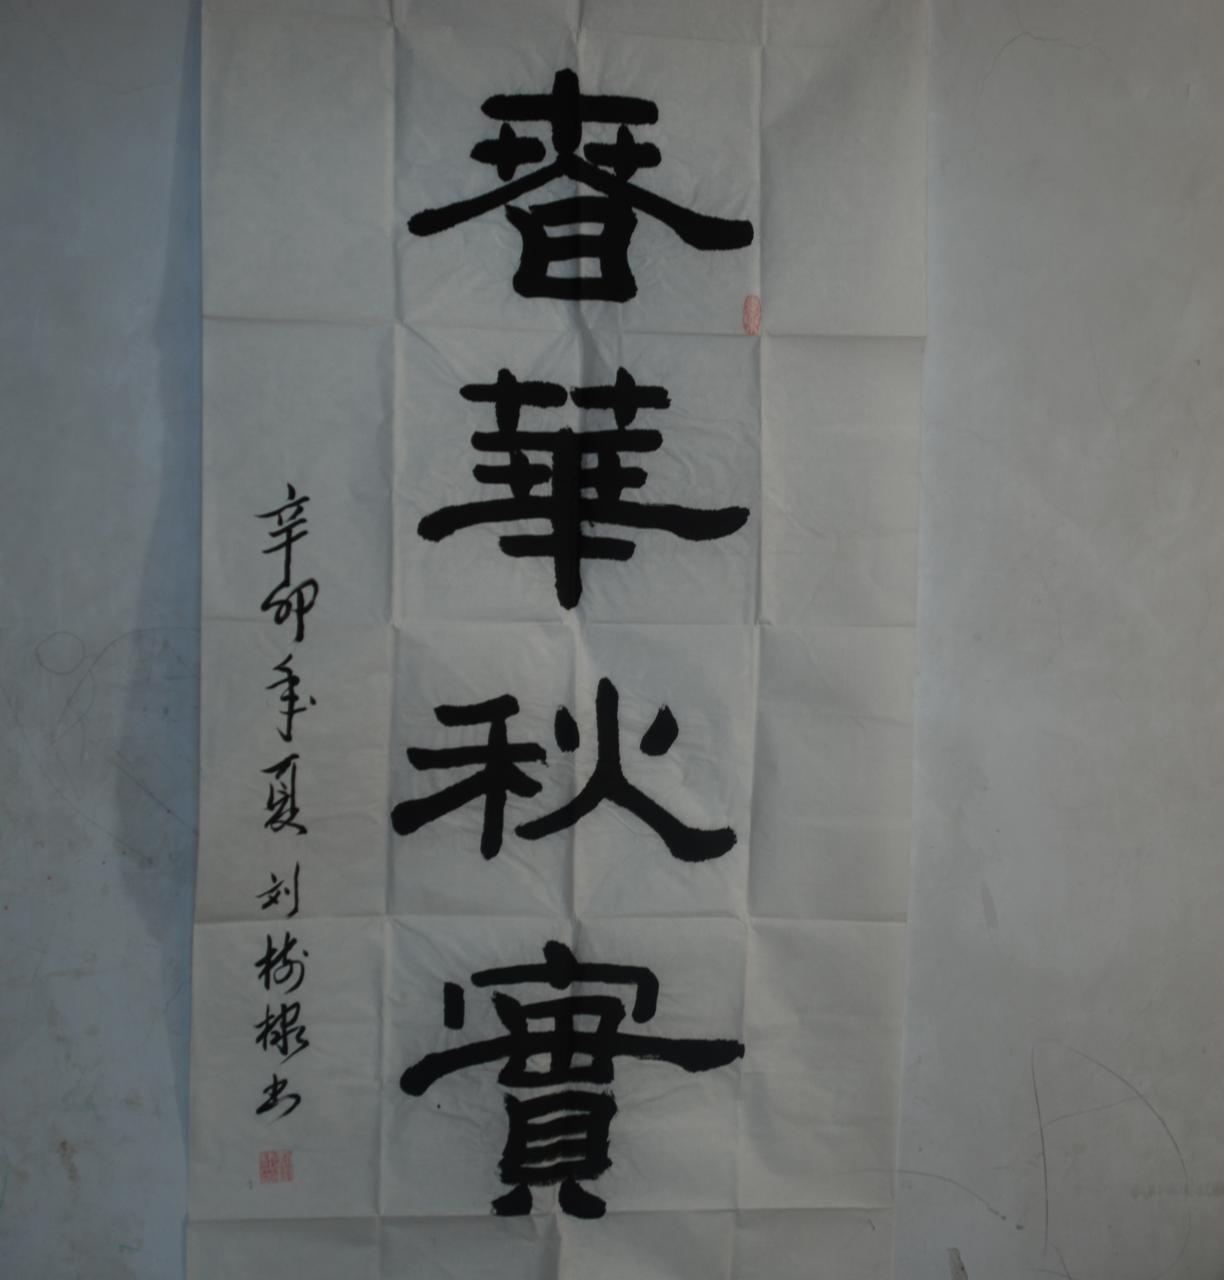 春華秋實
辛卯年夏刘樹棣书